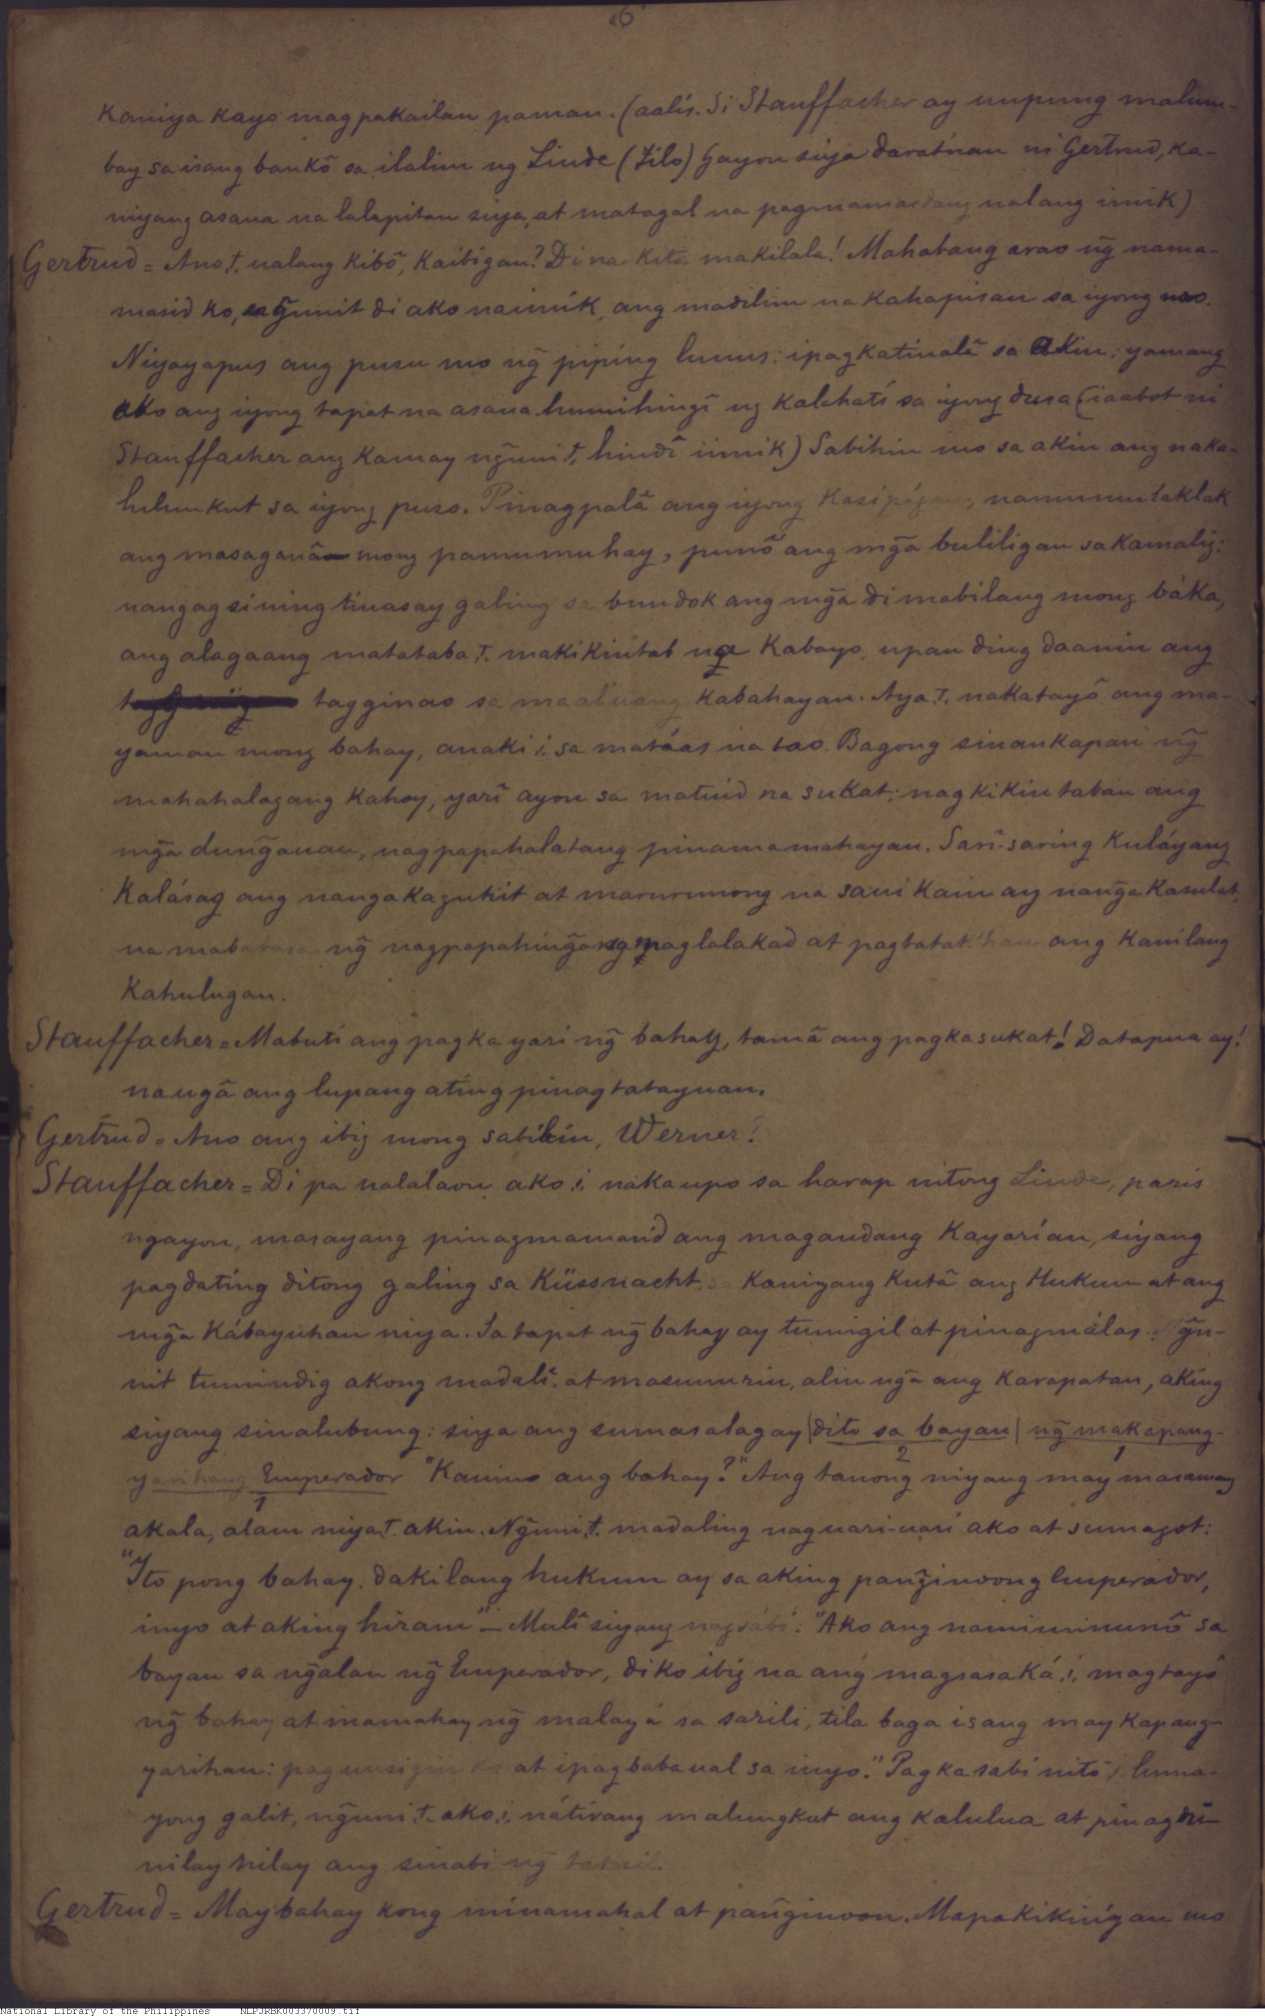 6
kaniya kayo magpakailan paman. (aalis. Si Stauffacher ay uupung malum-
bay sa isang bankô sa ilalim ng Linde (Tilo) Gayon siya daratnan ni Gertrud, ka-
niyang asaua na lalapitan siya, at matagal na pagmamasdang ualang imik)
Gertrud = Ano't, ualang kibô, kaibigan? Di na kita makilala! Mahabang arao ng̃ nama-
masid ko, ng̃unit di ako naimik, ang madilim na kahapisan sa iyong noo.
Niyayapus ang pusu mo ng̃ piping lunus: ipagkatiualã sa akin; yamang
ako ang iyong tapat na asaua humihingî ng kalahati sa iyong dusa (iaabot ni
Stauffacher ang kamay ng̃uni't, hindî iimik) Sabihin mo sa akin ang naka-
lulunkut sa iyong puso. Pinagpalã ang iyong kasipágan, namumulaklak
ang masaganâ mong pamumuhay, punô ang mg̃a buliligan sa kamalig:
nangagsining tinasay galing sa bundok ang mg̃a di mabilang mong báka,
ang alagaang matataba't, makikintab na kabayo, upan ding daanin ang
tagginao sa maaluang kabahayan. Aya't, nakatayô ang ma-
yaman mong bahay, anaki i, sa matáas na tao. Bagong sinankapan ng̃
mahahalagang kahoy, yarî ayon sa matuid na sukat; nagkikintaban ang
mg̃a dung̃auan, nagpapahalatang pinamamahayan. Sari-saring kuláyang
kalásag ang nangakaguhit at marurunong na sauikain ay nang̃akasulat,
na mababasa ng̃ nagpapahing̃ang paglalakad at pagtatakhan ang kanilang
kahulugan.
Stauffacher = Mabuti ang pagkayari ng̃ bahay, tamã ang pagkasukat! Datapua ay!
naugã ang lupang ating pinagtatayuan.
Gertrud = Ano ang ibig mong sabihin, Werner?
Stauffacher = Di pa nalalaon ako i, nakaupo sa harap nitong Linde, paris
ngayon, masayang pinagmamasid ang magandang kayarían, siyang
pagdating ditong galing sa Küssnacht sa kaniyang kutã ang Hukum at ang
mg̃a kábayuhan niya. Sa tapat ng̃ bahay ay tumigil at pinagmálas. Ng̃u-
nit tumindig akong madalî, at masunurin, alin ng̃a ang karapatan, aking
siyang sinalubung: siya ang sumasalagay |dito sa bayan| ng̃ makapang-
2 1
yarihang Emperador "Kanino ang bahay?" Ang tanong niyang may masamang
1
akala, alam niya't. akin. Ng̃uni't. madaling naguari-uari ako at sumagot:
"Ito pong bahay, dakilang hukum ay sa aking pang̃inoong Emperador,
inyo at aking hiram" — Mulî siyang nagsabi: "Ako ang namiminunô sa
bayan sa ng̃alan ng̃ Emperador, diko ibig na ang magsasaká i, magtayô
ng̃ bahay at mamahay ng̃ malayá sa sarili, tila baga isang may kapang-
yarihan: paguusigin ko at ipagbabaual sa inyo." Pagkasabi nito i, luma-
yong galit, ng̃uni't ako i, nátirang malungkut ang kalulua at pinagni-
nilay nilay ang sinabi ng̃
Gertrud = Maybahay kong minamahal at pang̃inoon. Mapakikinígan mo
National Library of the Philippines NLPJRBK003370009.tif